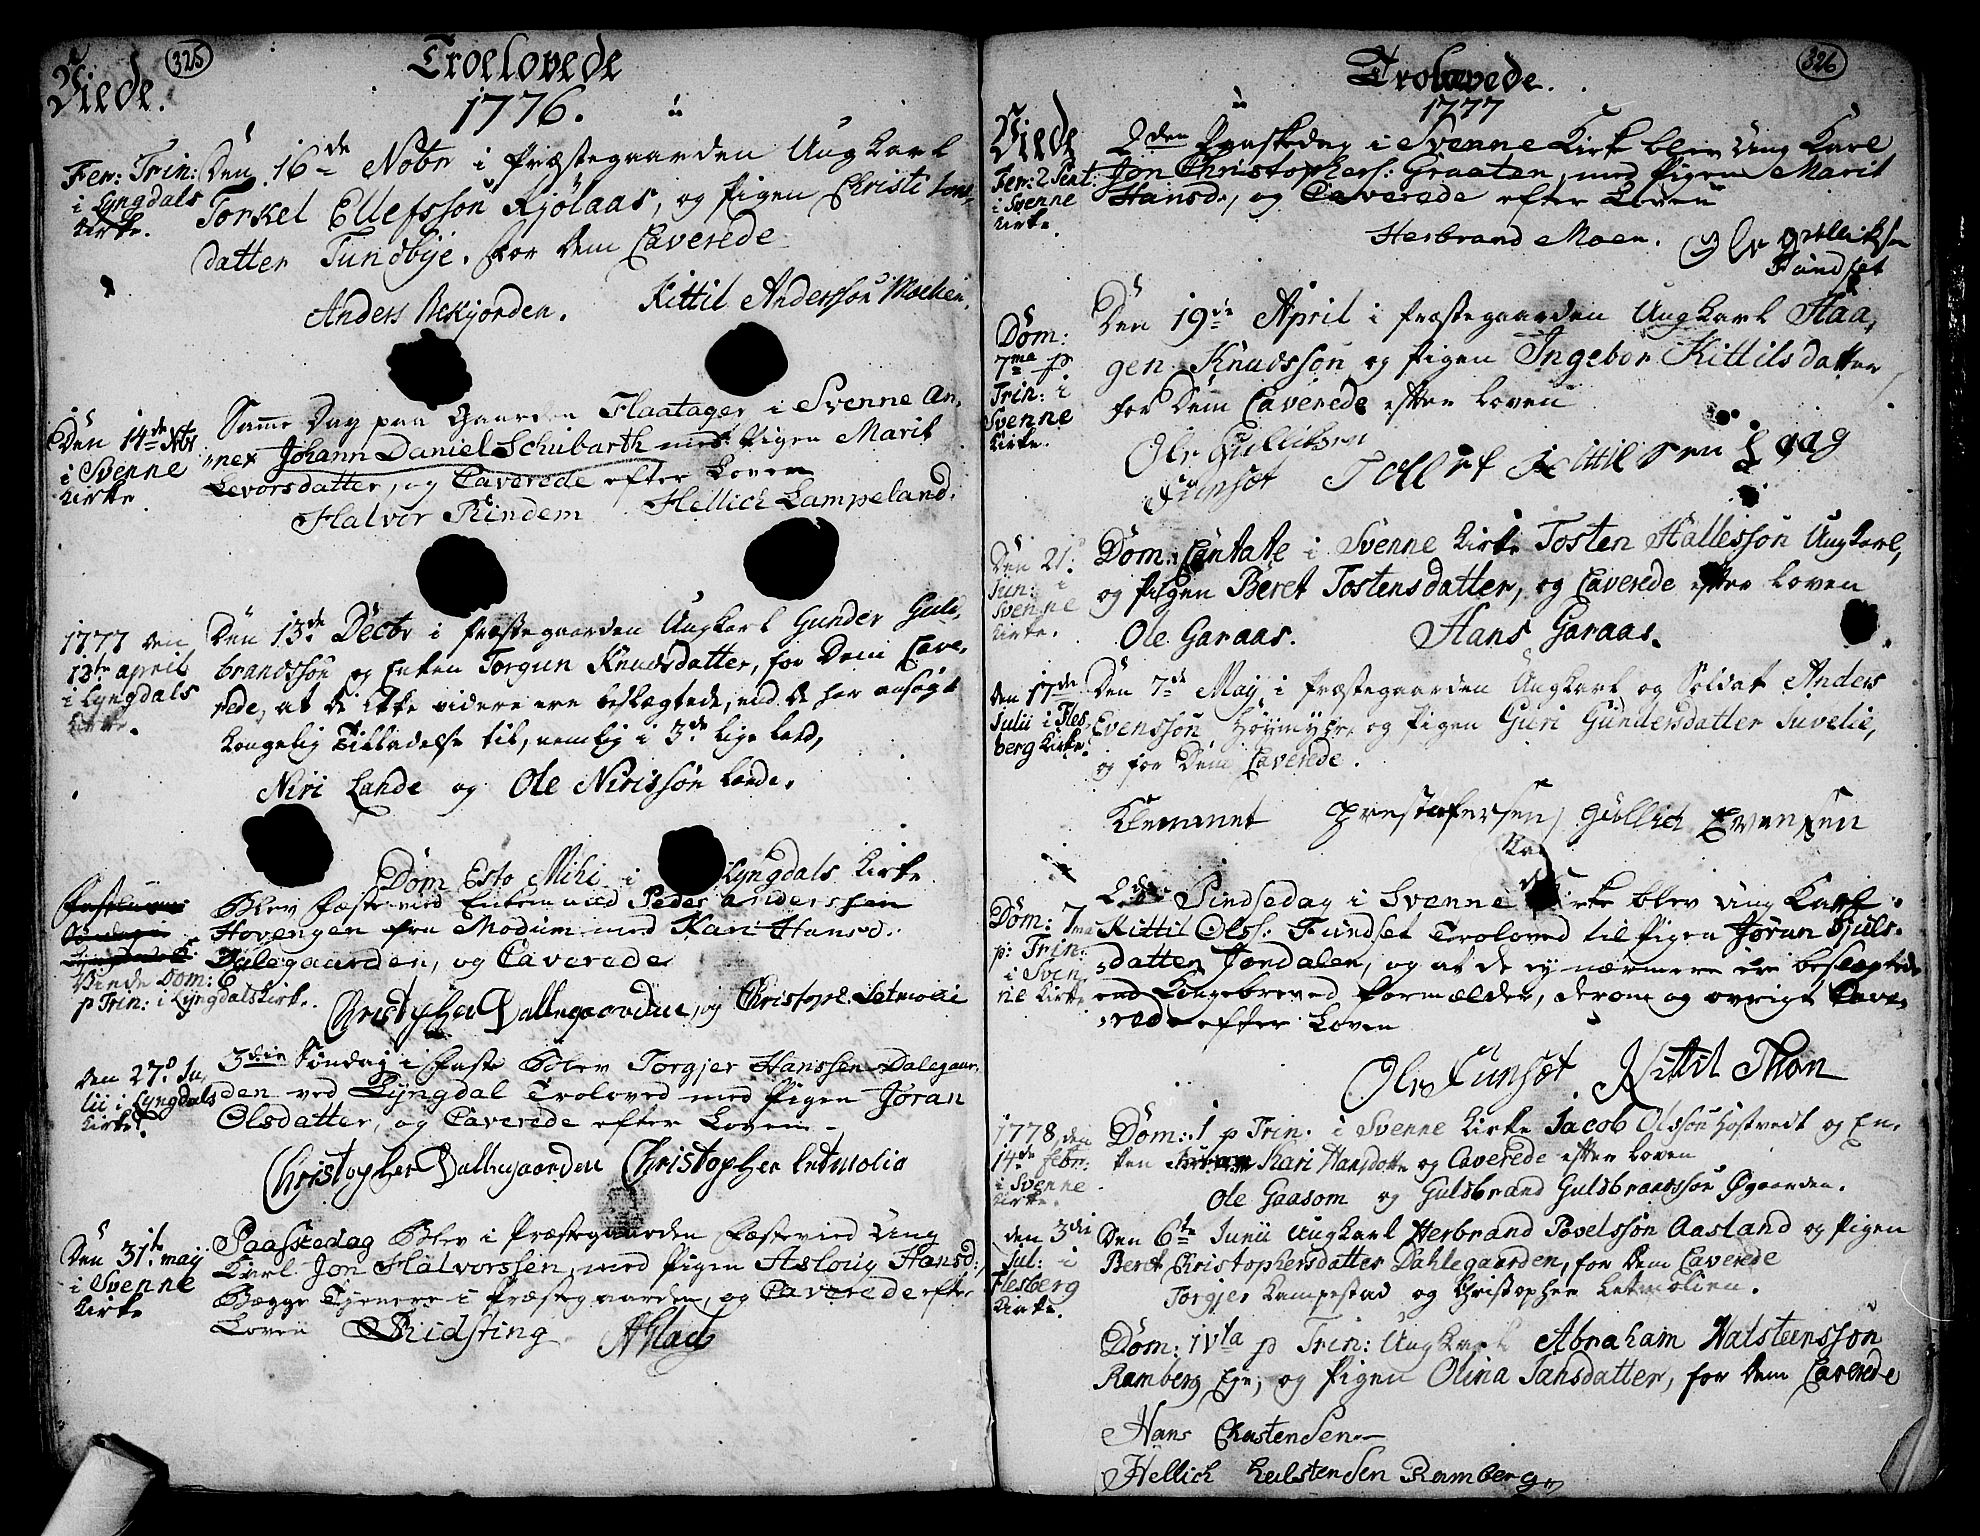 325
Viede.
Troelovede
1776.
Fer: Trin:
i Lyngdals
Kirke.
Den 16de Nobr i Præstegaarden Ungkarl
Torkel Ellefssøn Kjølaas, og Pigen Christi Jons
datter Tundbye. for dem Caverede
Anders Bekjorden. Kittil Anderssøn Moehen.
Den 14de Nbr
i Svenne
Kirke.
Samme Dag paa Gaarden Flaatager i Svenne An,
nex Johann Daniel Schubarth med Pigen Marit
Levorsdatter, og Caverede efter Loven
Halvor Rindem Hellich Lampeland.
1777 den
13de april
i Lyngdals
Kirke.
Den 13de Decbr i Præstegaarden Ungkarl Gunder Gul,
brandssøn og Enken Torgun Knudsdatter, for dem Cave,
rede, at de ikke videre ere beslægtede, end de har ansøgt
Kongelig Tilladelse til, nemlig i 3de lige Leed,
Niri Lande og Ole Nirissøn Lande.
Dom Esto Mihi i Lyngdals Kirke
Viede Dom: 6
p Trin: i Lyngdals Kirke.
Blev Fæsteviid Enkemand Peder Andersen
Hovengen fra Modum med Kari Hansd.
Dalegaarden, og Caverede
Christopher Dallegaarden, og Christoph: Letmolie
Den 27de Ju,
lii i Lyngdals
Kirke.
3die Søndag i Faste Blev Torgjer Hanssen Dalegaar,
den ved Lyngdal Troloved med Pigen Jøran
Olsdatter, og Caverede efter Loven
Christopher Dallegaarden Christopher Letmolia
Den 31te may
i Svenne
Kirke
Paaskedag Blev i Præstegaarden Fæsteviid Ung
Karl Jon Halvorssen, med Pigen Asloug Hansd:,
Begge Tjenere i Præstegaarden, og Caverede efter
Loven Ridsting
326
Trolovede.
1777
Viede
Fer: 2 Pent:
i Svenne
Kirke.
2den Paaskedag i Svenne Kirke blev Ung Karl
Jon Christophers: Graaten, med Pigen Marit
Hansd, og Caverede efter Loven
Herbrand Moen. Ole Gulliksen
Fundset
Dom:
7ma p
Trin: i
Svenne
Kirke.
Den 19de April i Præstegaarden Ungkarl Haa,
gen Knudssøn og Pigen Ingebor Kittilsdatter
for dem Caverede efter Loven
Ole Gulliksen
Funset Tollef Kittilsen Haag
Den 21de
Jun: i
Svenne
Kirke.
Dom: Cantate i Svenne Kirke Tosten Hallessøn Ungkarl,
og Pigen Beret Tostensdatter, og Caverede efter Loven
Ole Garaas. Hans Garaas.
Den 17de
Julii i Fles,
berg Kirke.
Den 7de May i Præstegaarden Ungkarl og Soldat Anders
Evenssøn Høymyhr, og Pigen Guri Gundersdatter Juvelie,
og for dem Caverede.
Klemmet Prestafersen, Gullich Evensen
Dom: 7ma
p: Trin:
i Sven,
ne Kirke
2den Pindsedag i Svenne Kirke blev Ung Karl
Kittil Olss: Fundset Troloved til Pigen Jøran Kjuls,
datter Jøndalen, og at de ej nærmere ere beslægtede
end Kongebreved formælder, derom og øvrigt Cave,
rede efter Loven
Ole Funset Kittil Thon
1778 den
14de febr:
i Svenne
Kirke.
Dom: 1 p Trin: i Svenne Kirke Jacob Olssøn Høstvedt og En,
ken Kari Hansdotte og Caverede efter Loven
Ole Gaasom og Guldbrand Guldbrandssøn Øgaarden.
den 3die
Jul: i
Flesberg
Kirke.
Den 6te Junii Ungkarl Herbrand Povelssøn Aasland og Pigen
Beret Christophersdatter Dahlegaarden, for dem Caverede
Torgjer Lampestad og Christopher Letmolien.
Dom: IVta p Trin: Ungkarl Abraham Halsteenssøn
Ramberg Eje, og Pigen Olina Jansdatter, for dem Caverede
Hans Chastensen
Hellich Halstensen Ramberg